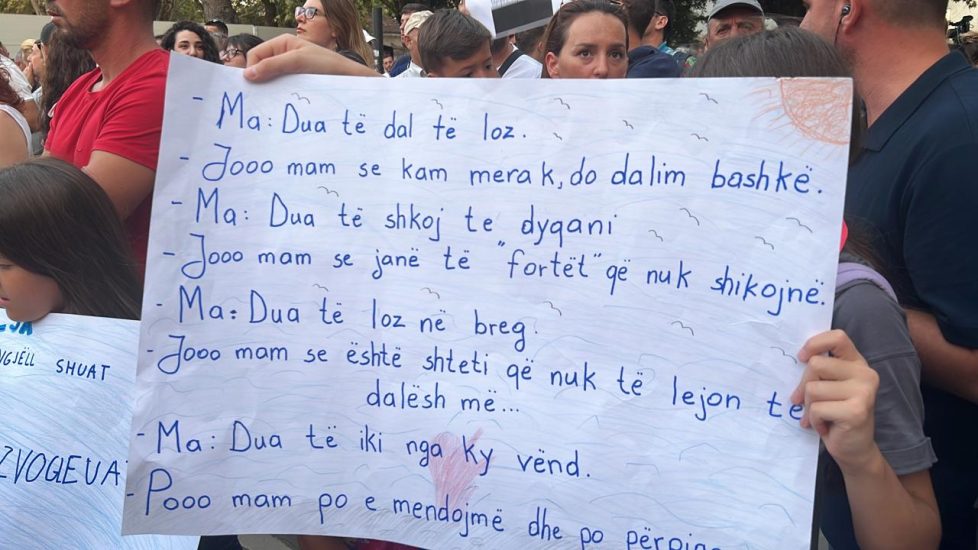 - Ma: Dua të dal të loz.
- Jooo mam se kam merak, do dalim bashkë.
- Ma: Dua të shkoj te dyqani
- Jooo mam se janë të "fortët" që nuk shikojnë.
- Ma: Dua të loz në breg.
- Jooo mam se është shteti që nuk të lejon të
dalësh më...
- Ma: Dua të iki nga ky vënd.
- Pooo mam po e mendojmë dhe po
SHUAT